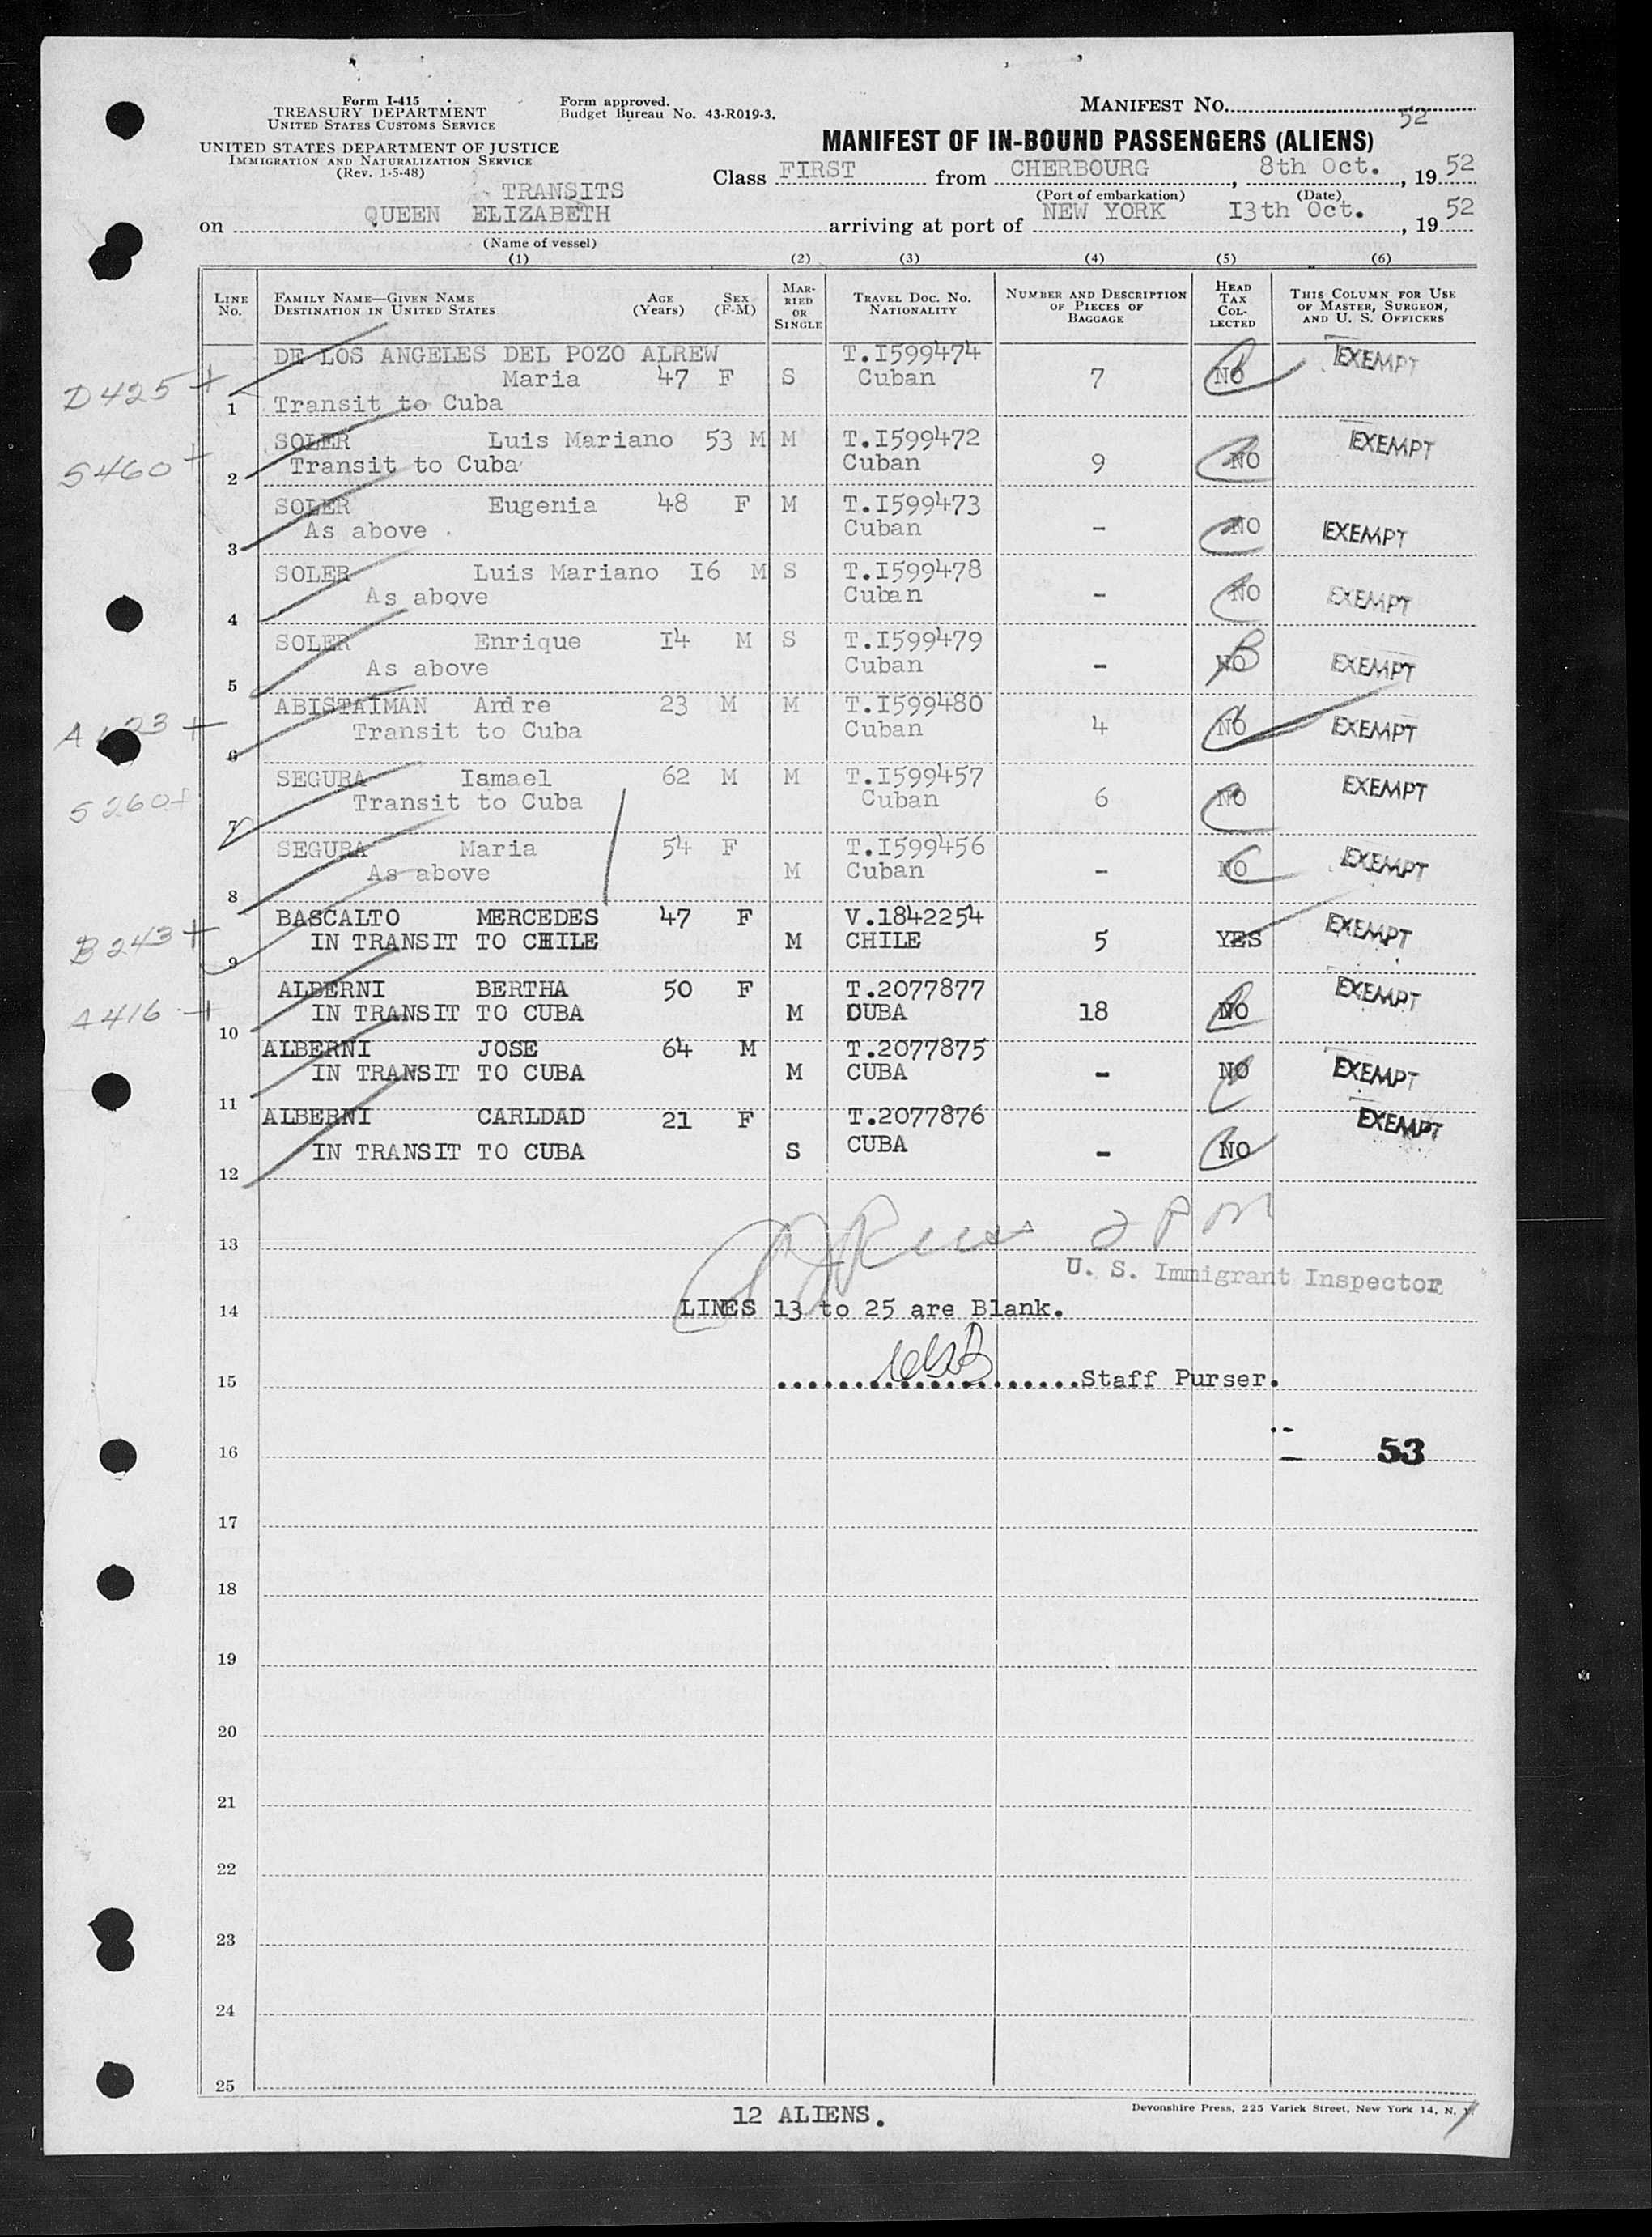 Form I-415
TREASURY DEPARTMENT
UNITED STATES CUSTOMS SERVICE
UNITED STATES DEPARTMENT OF JUSTICE
IMMIGRATION AND NATURALIZATION SERVICE
(Rev. 1-5-48)
Form approved.
Budget Bureau No. 43-R019-3.
MANIFEST NO.
52
MANIFEST OF IN-BOUND PASSENGERS (ALIENS)
Class FIRST from CHERBOURG, 8th Oct., 1952
(Port of embarkation) (Date)
TRANSITS
on QUEEN ELIZABETH arriving at port of NEW YORK I3th Oct., 1952
(Name of vessel)
(1) (2) (3) (4) (5) (6)
LINE NO. FAMILY NAME—GIVEN NAME DESTINATION IN UNITED STATES AGE (YEARS) SEX (F-M) MARRIED OR SINGLE TRAVEL DOC. NO. NATIONALITY NUMBER AND DESCRIPTION OF PIECES OF BAGGAGE HEAD TAX COLLECTED THIS COLUMN FOR USE OF MASTER, SURGEON, AND U. S. OFFICERS
DE LOS ANGELES DEL POZO ALREW T.I599474 EXEMPT
D425+ Maria 47 F S Cuban 7 NO
1 Transit to Cuba
SOLER Luis Mariano 53 M M T.I599472 EXEMPT
S460+ 2 Transit to Cuba Cuban 9 NO
SOLER Eugenia 48 F M T.I599473
3 As above Cuban - NO EXEMPT
SOLER Luis Mariano I6 M S T.I599478
4 As above Cuban - NO EXEMPT
SOLER Enrique I4 M S T.I599479
5 As above Cuban - NO EXEMPT
ABISTAIMAN Andre 23 M M T.I599480
6 Transit to Cuba Cuban 4 NO EXEMPT
SEGURA Ismael 62 M M T.I599457 EXEMPT
S260+ 7 Transit to Cuba Cuban 6 NO
SEGURA Maria 54 F T.I599456 EXEMPT
8 As above M Cuban - NO
BASCALTO MERCEDES 47 F V.1842254 EXEMPT
B243+ 9 IN TRANSIT TO CHILE M CHILE 5 YES
ALBERNI BERTHA 50 F T.2077877 EXEMPT
A416 + 10 IN TRANSIT TO CUBA M CUBA 18 NO
ALBERNI JOSE 64 M T.2077875
11 IN TRANSIT TO CUBA M CUBA - NO EXEMPT
ALBERNI CARLDAD 21 F T.2077876 EXEMPT
12 IN TRANSIT TO CUBA S CUBA - NO
2 PM
13
U. S. Immigrant Inspector
14 LINES 13 to 25 are Blank.
15 ....................Staff Purser.
16 53
17
18
19
20
21
22
23
24
25
12 ALIENS.
Devonshire Press, 225 Varick Street, New York 14, N. Y.